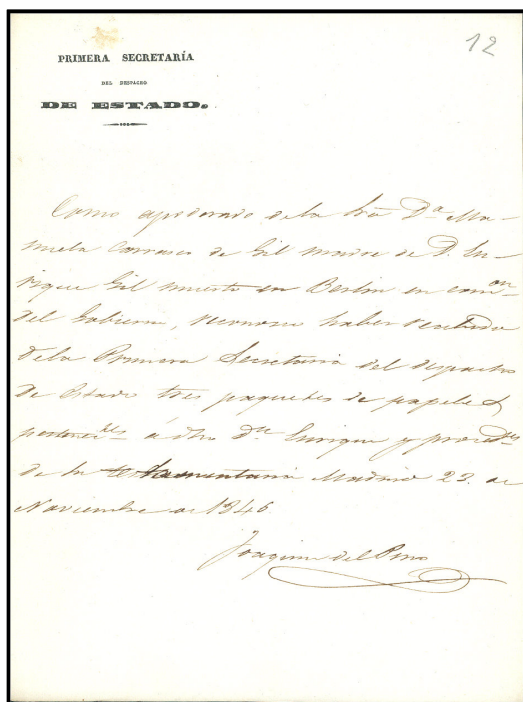 12
PRIMERA SECRETARÍA
DEL DESPACHO
DE ESTADO.
Como apoderado de la Sra. Dª Ma-
nuela Carrasco de Gil madre de D. En-
rique Gil muerto en Berlin en comon
del Gobierno, reconozco haber recibido
dela Primera Secretaria del despacho
de Estado tres paquetes de papeles
pertenectes á dho Dn Enrique y procedtes
de la testamentaria Madrid 23. de
Noviembre de 1846.
Joaquin del Pino